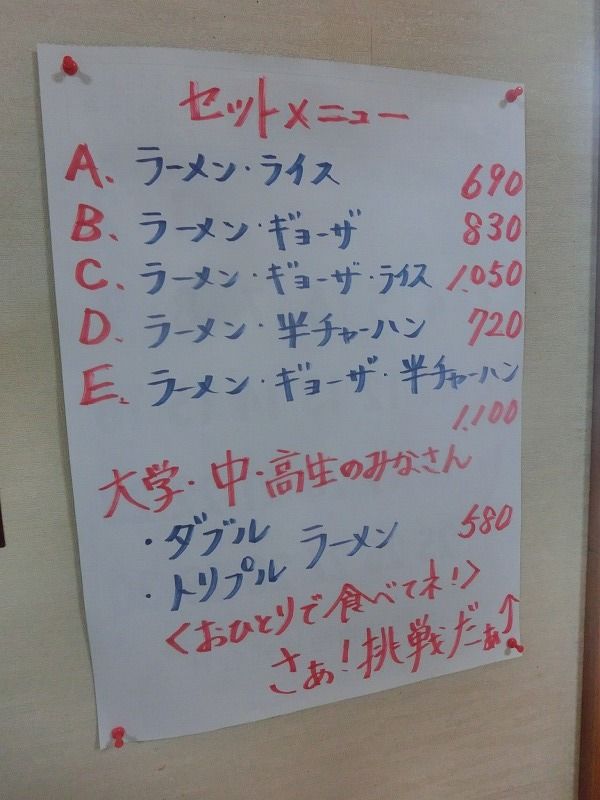 セットメニュー
A. ラーメン・ライス 690
B. ラーメン・ギョーザ 830
C. ラーメン・ギョーザ・ライス 1.050
D. ラーメン・半チャーハン 720
E. ラーメン・ギョーザ・半チャーハン
1.100
大学・中・高生のみなさん
・ダブル
・トリプル ラーメン 580
<おひとりで食べてネ!>
さぁ!挑戦だーぁ↑